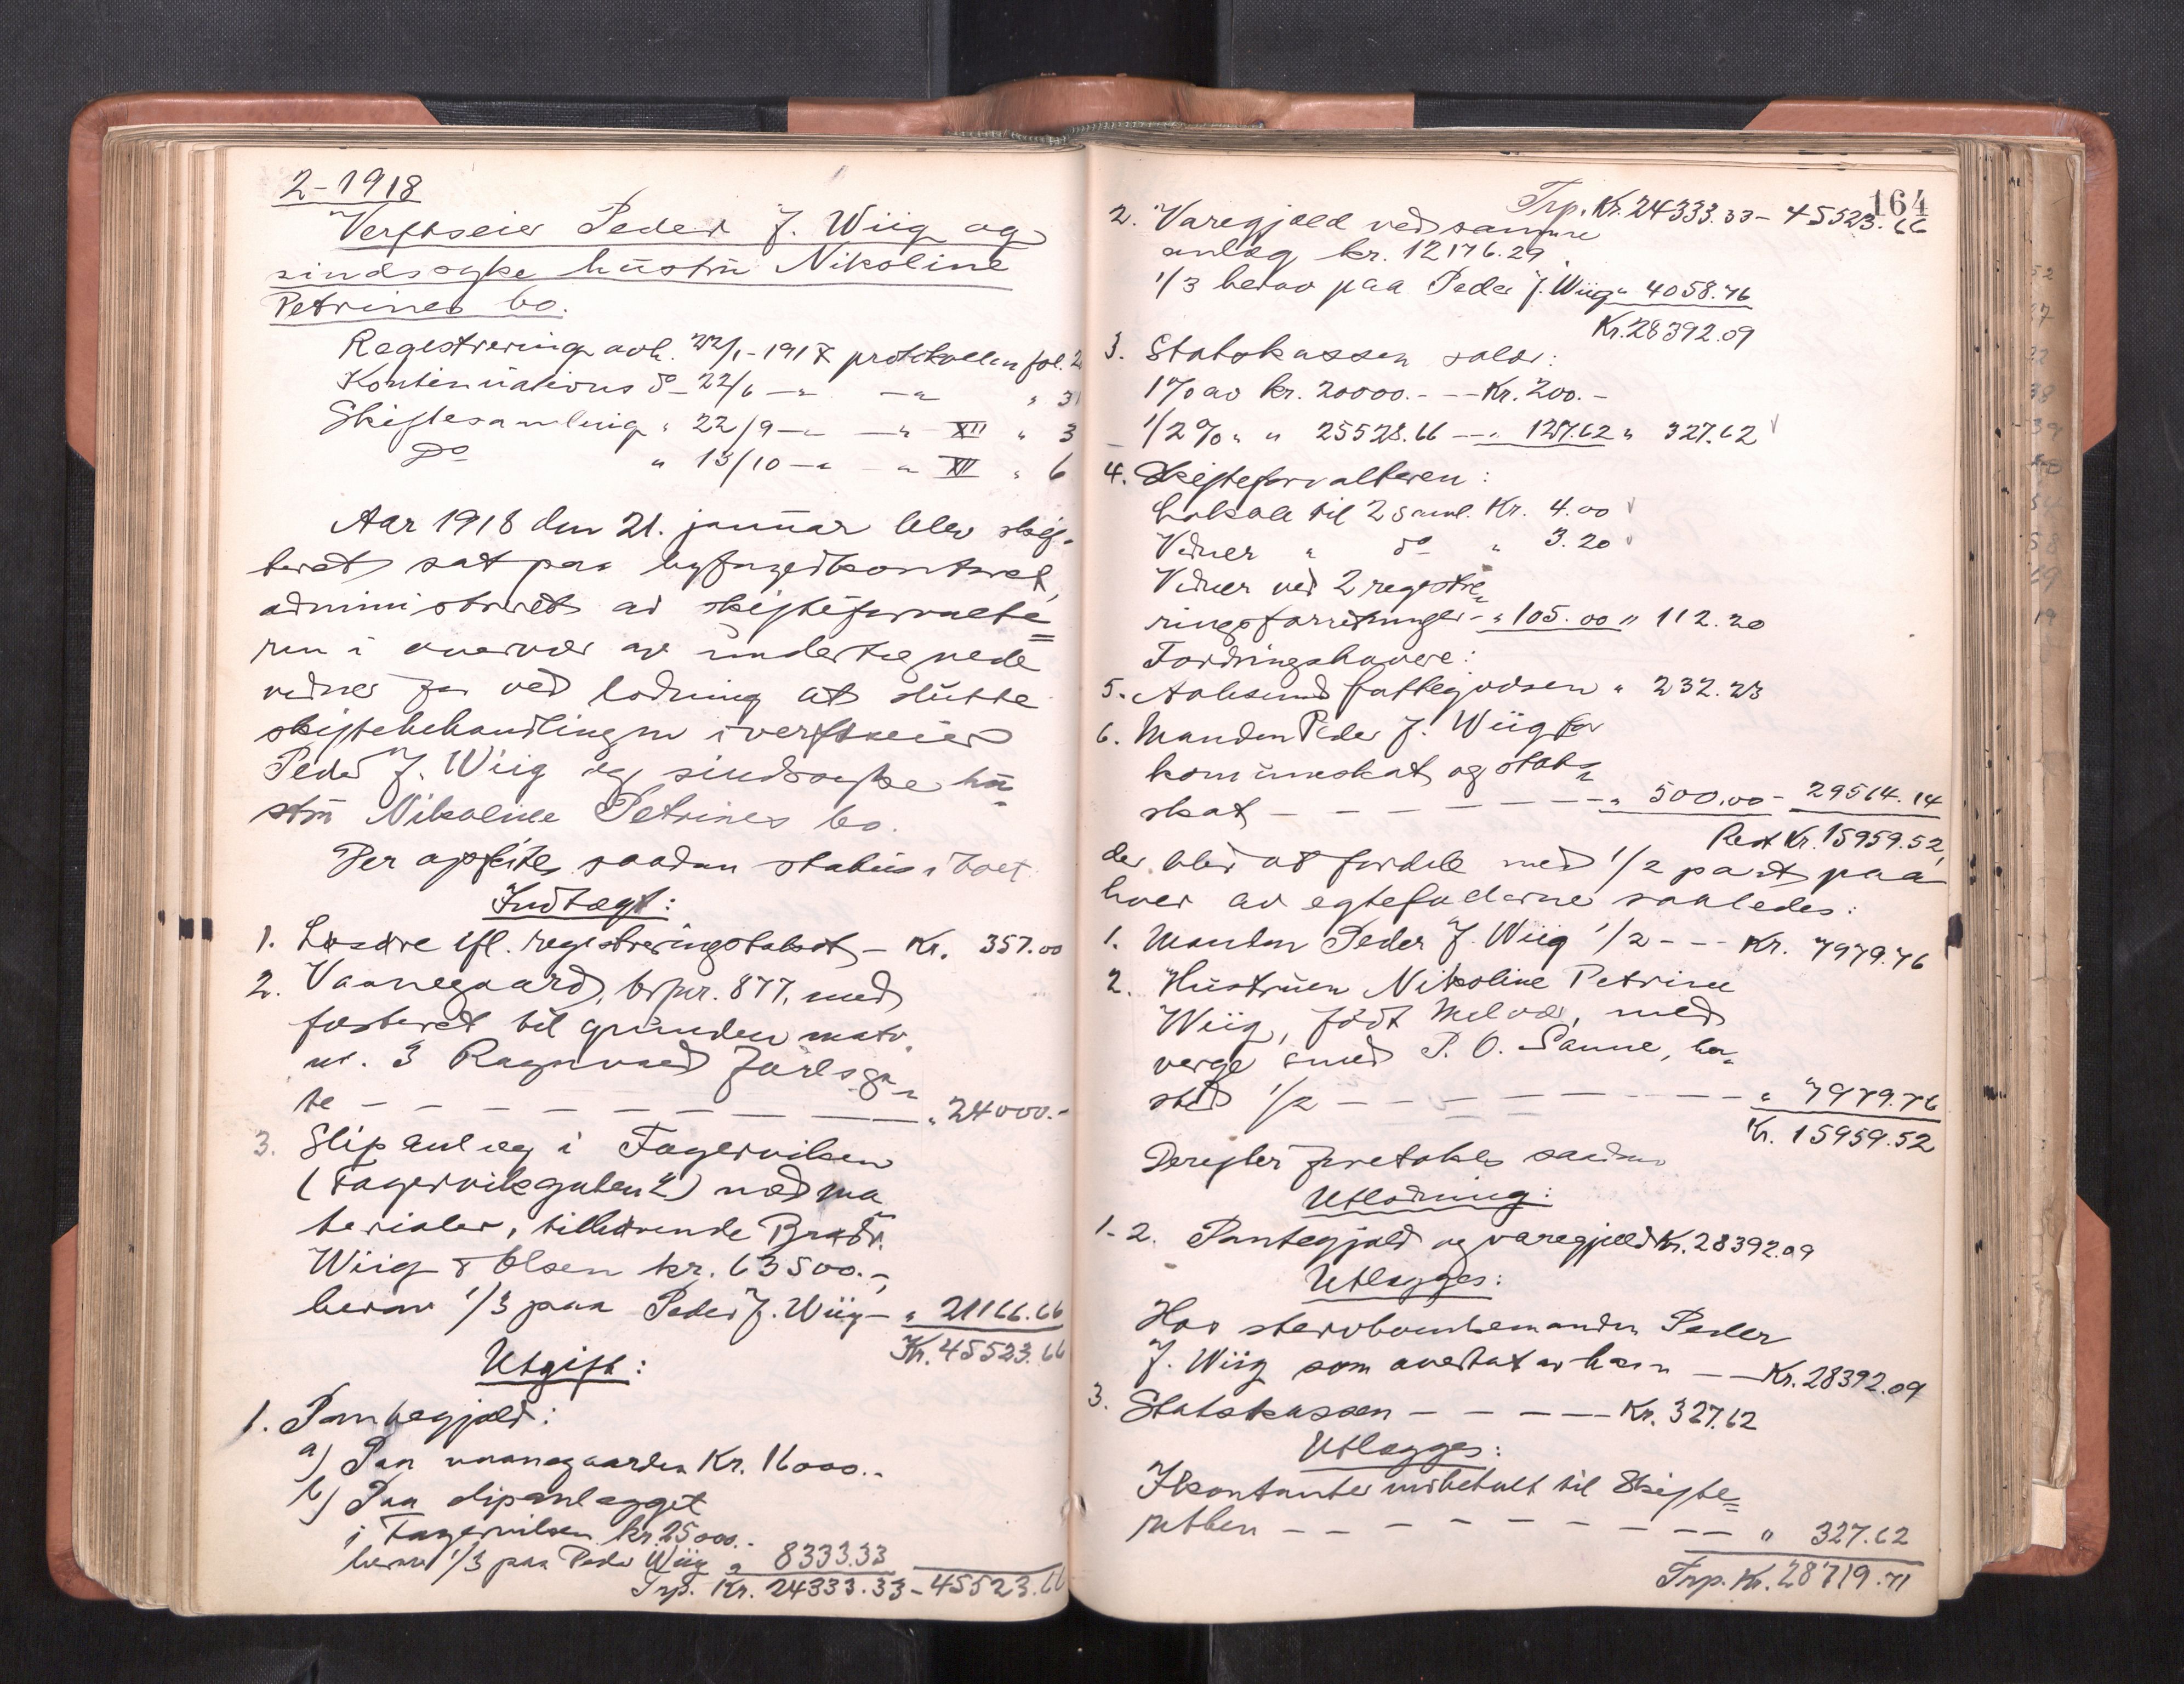 2-1918
Verftseier Peder J. Wiig og
sindssyke hustru Nikoline
Petrines bo.
Registrering avh. 22/1-1917 protokollen fol. 2
Kontinuations do 22/6 — " — " " 31
Skiftesamling " 22/9 — " — " XII " 3
Do " 13/10 — " — " XII " 6
Aar 1918 den 21. januar blev skif-
teret sat paa byfogedkontoret,
administreret av skifteforvalte=
ren i overvær av undertegnede
vidner for ved lodning at slutte
skiftebehandlingen i verftseier
Peder J. Wiig og sindssyke hu-
stru Nikoline Petrines bo.
Der opførtes saadan status i boet
Indtægt:
1. Løsøre ifl. registreringstakst — Kr. 357.00
2. Vaanegaard, brpr. 877, med
festeret til grunden matr.
nr. 3 Ragnvald Jarlsga-
te — — — — — — — " 24000.-
3. Slipanlæg i Fagerviken
(Fagervikgaten 2) med ma
terialer, tilhørende Brødr.
Wiig & Olsen kr. 63500.-,
herav 1/3 paa Peder J. Wiig — " 21166.66
Kr. 45523.66
Utgift:
1. Pantegjæld:
a) Paa vaanegaarden Kr. 16000.-
b) Paa slipanlægget
i Fagerviken kr. 25000.-
herav 1/3 paa Peder Wiig " 8333.33
Trp. Kr. 24333.33 - 45523.66
164
Trp. Kr. 24333.33 - 45523.66
2. Varegjæld ved samme
anlæg kr. 12176.29.
1/3 herav paa Peder J. Wiig " 4058.76
Kr. 28392.09
3. Statskassen salær:
1% av kr. 20000.- — Kr. 200.-
1/2% " " 25523.66 — " 127.62 " 327.62
4. Skifteforvalteren:
Lokale til 2 saml. Kr. 4.00
Vidner " do " 3.20
Vidner ved 2 registre-
ringsforretninger - " 105.00 " 112.20
Fordringshavere:
5. Aalesund fattigvæsen " 232.23
6. Manden Peder J. Wiig for
komuneskat og stats-
skat — — — — — — " 500.00 - 29564.14
Rest Kr. 15959.52,
der blir at fordele med 1/2 part paa
hver av egtefællerne saaledes:
1. Manden Peder J. Wiig 1/2 - - - Kr. 7979.76
2. Hustruen Nikoline Petrine
Wiig, født Melvær, med
verge smed P. O. Sanne, her-
sted 1/2 — — — — — — — " 7979.76
Kr. 15959.52
Derefter foretokes saadan
Utlodning:
1-2. Pantegjæld og varegjæld Kr. 28392.09
Utlægges:
Hos stervboenkemanden Peder
J. Wiig som overtat av ham — — Kr. 28392.09
3. Statskassen — — — — — Kr. 327.62
Utlægges:
I kontanter indbetalt til Skifte=
retten — — — — — — — — — " 327.62
Trp. Kr. 28719.71